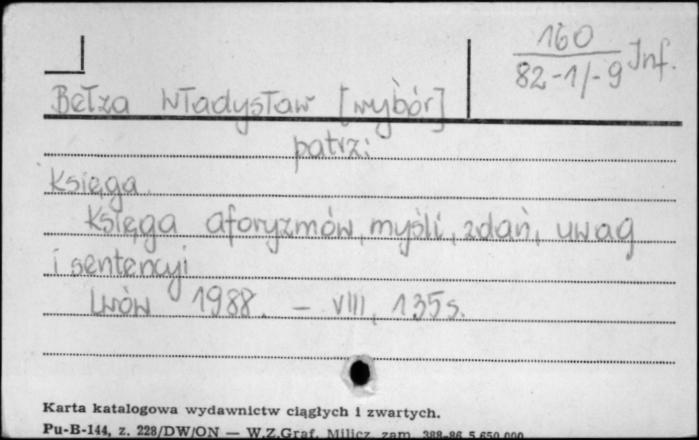 160
82-1/-9 Inf.
Bełza Władysław [wybór]
patrz:
Księga
Księga aforyzmów, myśli, zdań, uwag
i sentencyi
Lwów 1988. – VIII, 135 s.
Karta katalogowa wydawnictw ciągłych i zwartych.
Pu-B-144, z. 228/DW/ON — W.Z.Graf. Milicz, zam. 388-86 5.650.000